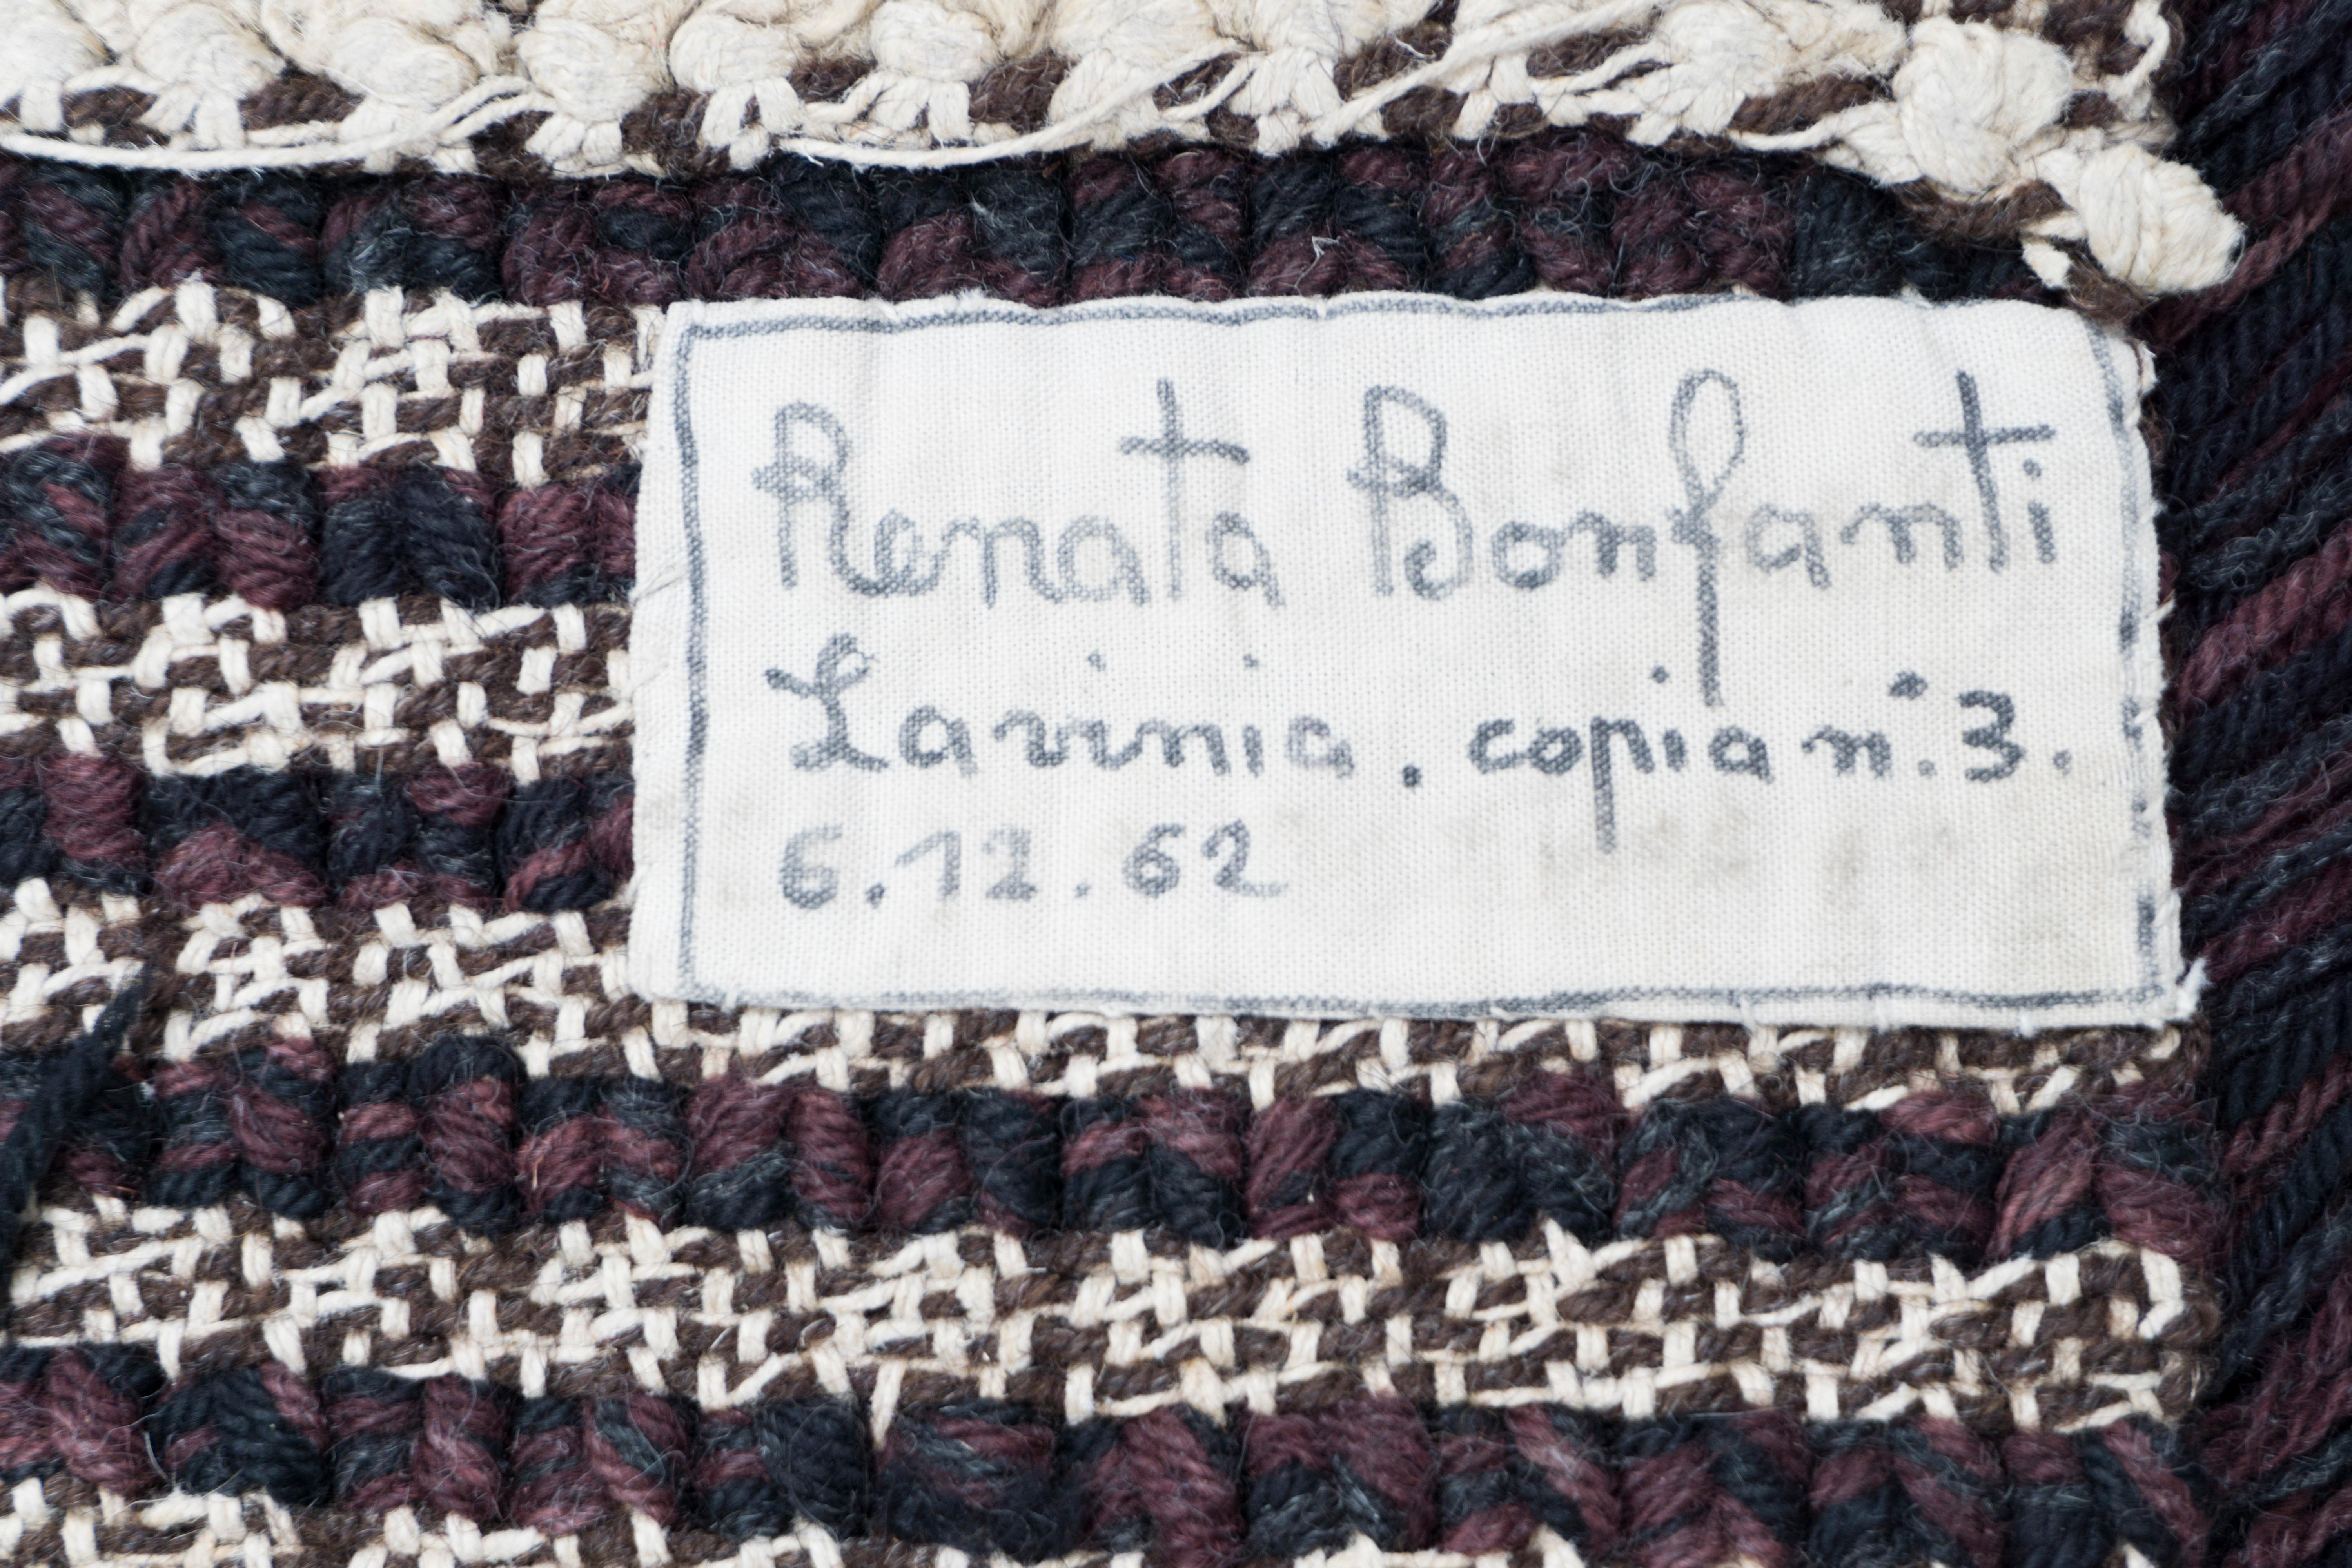 Renata Bonfanti
Lavinia. copia n° 3.
6.12.62